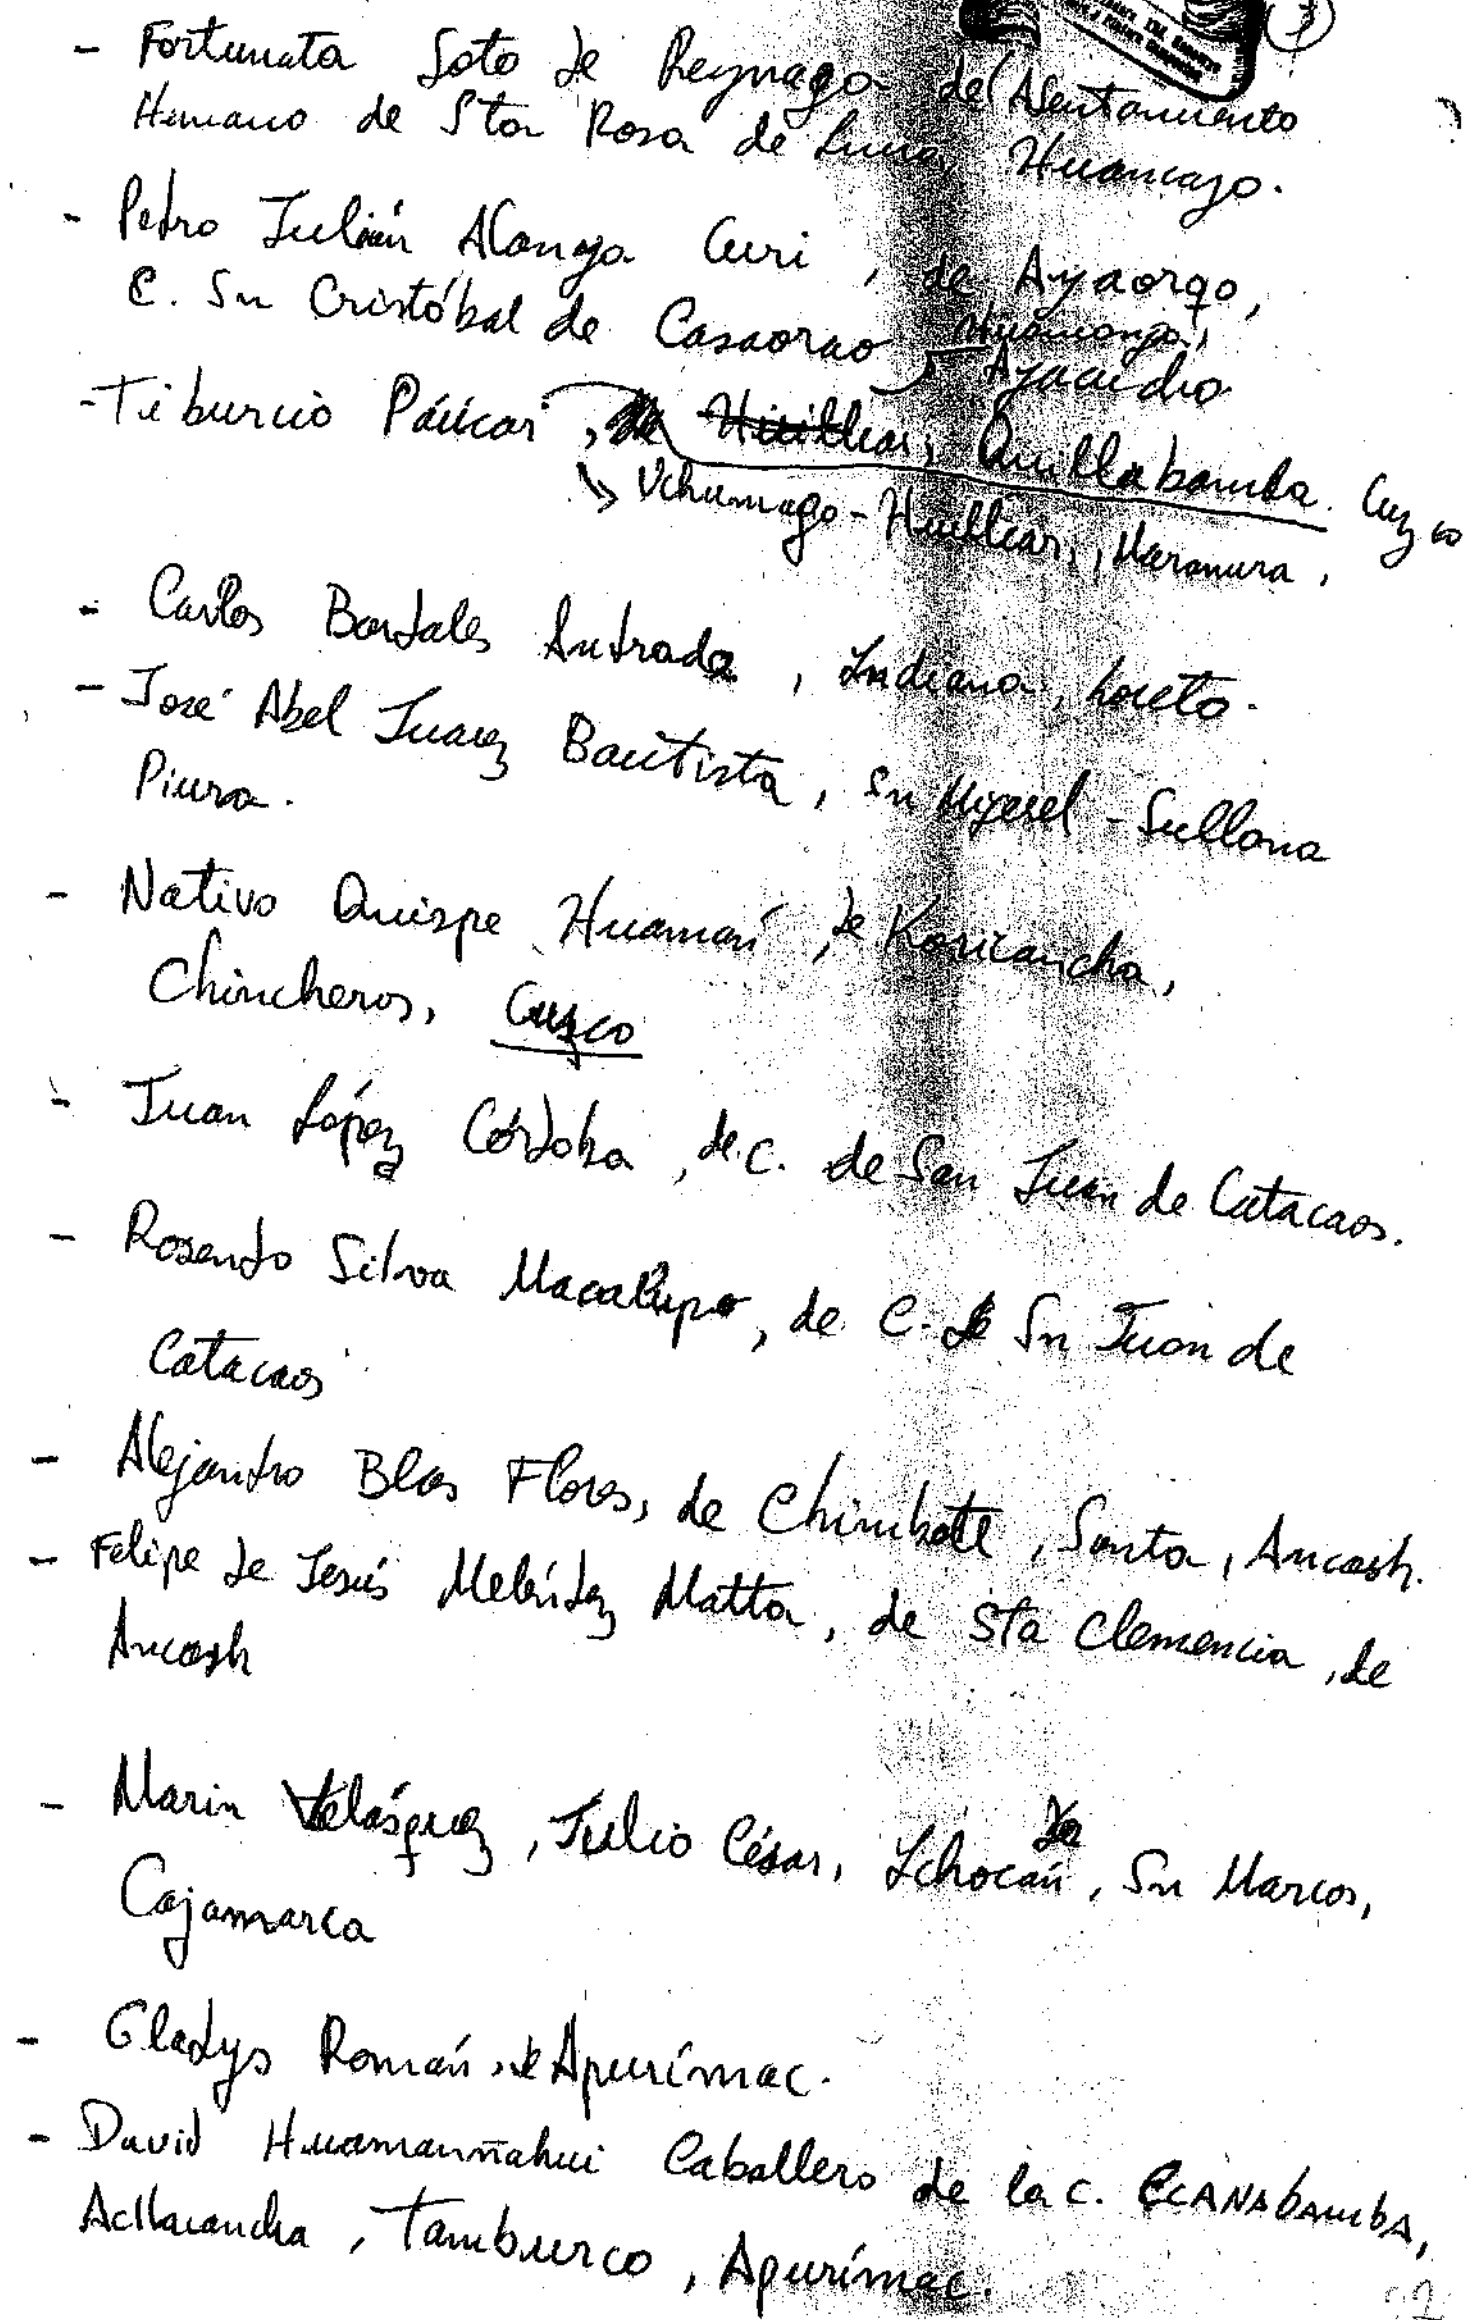 - Fortunata Soto de Reynaga del Asentamiento
Humano de Sta Rosa de Huancayo.
- Pedro Julián Alanya Curi, de Ayaorqo,
C. Sn Cristóbal de Casaorao, Huamanga,
Ayacucho
- Tiburcio Páucar, de Huillcar, Quillabamba. Cuzco
Uchumayo - Huillcar, Maranura,
- Carlos Bardales Andrade, Indiana, Loreto.
- José Abel Juarez Bautista, Sn Miguel - Sullana
Piura.
- Nativo Quispe Huamán, de Koricancha,
Chincheros, Cuzco
- Juan López Córdoba, de C. de San Juan de Catacaos.
- Rosendo Silva Macalupo, de C. de Sn Juan de
Catacaos
- Alejandro Blas Flores, de Chimbote, Santa, Ancash.
- Felipe de Jesús Meléndez Matta, de Sta Clemencia, de
Ancash
- Marin Velásquez, Julio César, de Ichocán, Sn Marcos,
Cajamarca
- Gladys Román, de Apurímac.
- David Huamanñahui Caballero de la C. CCANAbambA,
Acllacancha, Tamburco, Apurímac.